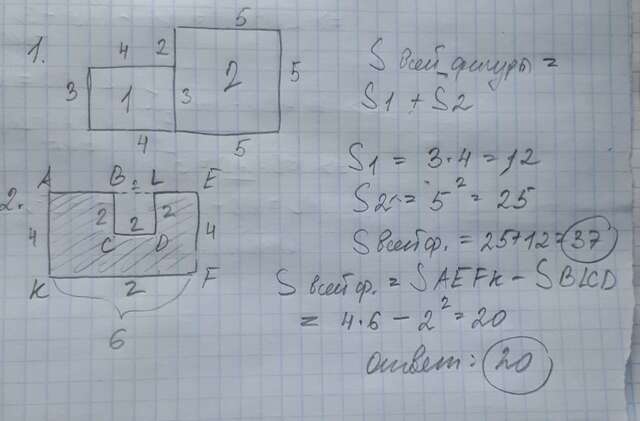 1.
5
4 2
3 1 3 2 5
4 5
S всей фигуры =
S1 + S2
S1 = 3·4 = 12
S2 = 5² = 25
S всей ф. = 25+12 = 37
2.
A B L E
2 2
4 2 4
C D
K 2 F
6
S всей ф. = S AEFK - S BLCD
= 4·6 - 2² = 20
ответ: 20